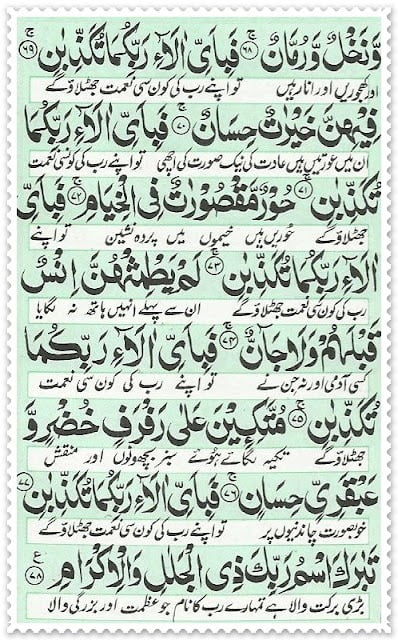 وَّنَخْلٌ وَّرُمَّانٌ ۚ ۶۸ فَبِاَیِّ اٰلَآءِ رَبِّكُمَا تُكَذِّبٰنِ ۚ ۶۹
اور کھجوریں اور انار ہیں تو اپنے رب کی کون سی نعمت جھٹلاؤ گے
فِیْهِنَّ خَیْرٰتٌ حِسَانٌ ۚ ۷۰ فَبِاَیِّ اٰلَآءِ رَبِّكُمَا
ان میں عورتیں ہیں عادت کی نیک صورت کی اچھی تو اپنے رب کی کونسی نعمت
تُكَذِّبٰنِ ۚ ۷۱ حُوْرٌ مَّقْصُوْرٰتٌ فِی الْخِیَامِ ۚ ۷۲ فَبِاَیِّ
جھٹلاؤ گے حوریں ہیں خیموں میں پردہ نشین تو اپنے
اٰلَآءِ رَبِّكُمَا تُكَذِّبٰنِ ۚ ۷۳ لَمْ یَطْمِثْهُنَّ اِنْسٌ
رب کی کون سی نعمت جھٹلاؤ گے ان سے پہلے انہیں ہاتھ نہ لگایا
قَبْلَهُمْ وَلَا جَآنٌّ ۚ ۷۴ فَبِاَیِّ اٰلَآءِ رَبِّكُمَا
کسی آدمی اور نہ جن نے تو اپنے رب کی کون سی نعمت
تُكَذِّبٰنِ ۚ ۷۵ مُتَّكِـِٕیْنَ عَلٰی رَفْرَفٍ خُضْرٍ وَّ
جھٹلاؤ گے تکیہ لگائے ہوئے سبز بچھونوں اور منقش
عَبْقَرِیٍّ حِسَانٍ ۚ ۷۶ فَبِاَیِّ اٰلَآءِ رَبِّكُمَا تُكَذِّبٰنِ ۷۷
خوبصورت چاندنیوں پر تو اپنے رب کی کون سی نعمت جھٹلاؤ گے
تَبٰرَكَ اسْمُ رَبِّكَ ذِی الْجَلٰلِ وَالْاِكْرَامِ ۷۸ ع
بڑی برکت والا ہے تمہارے رب کا نام جو عظمت اور بزرگی والا